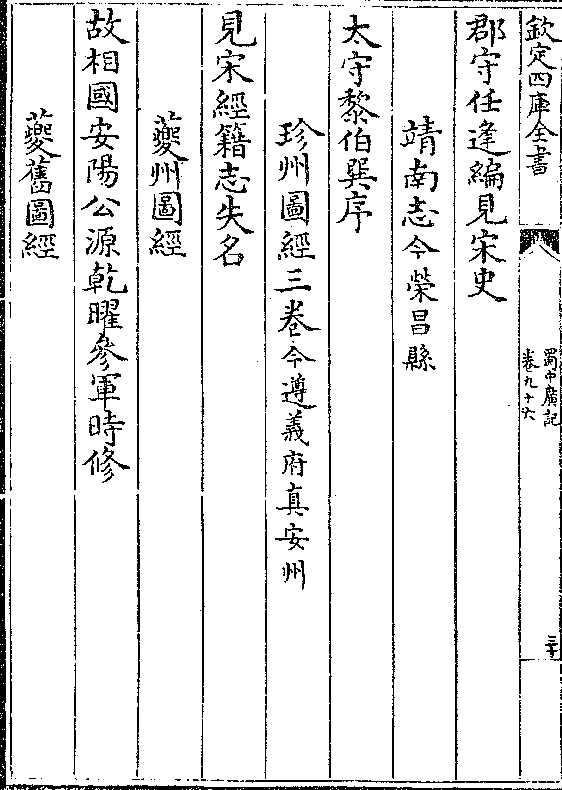 欽定四庫全書
蜀中廣記
卷九十六
三十
郡守任逢編見宋史
靖南志今榮昌縣
太守黎伯巽序
珍州圖經三卷今遵義府真安州
見宋經籍志失名
夔州圖經
故相國安陽公源乾曜參軍時修
夔舊圖經